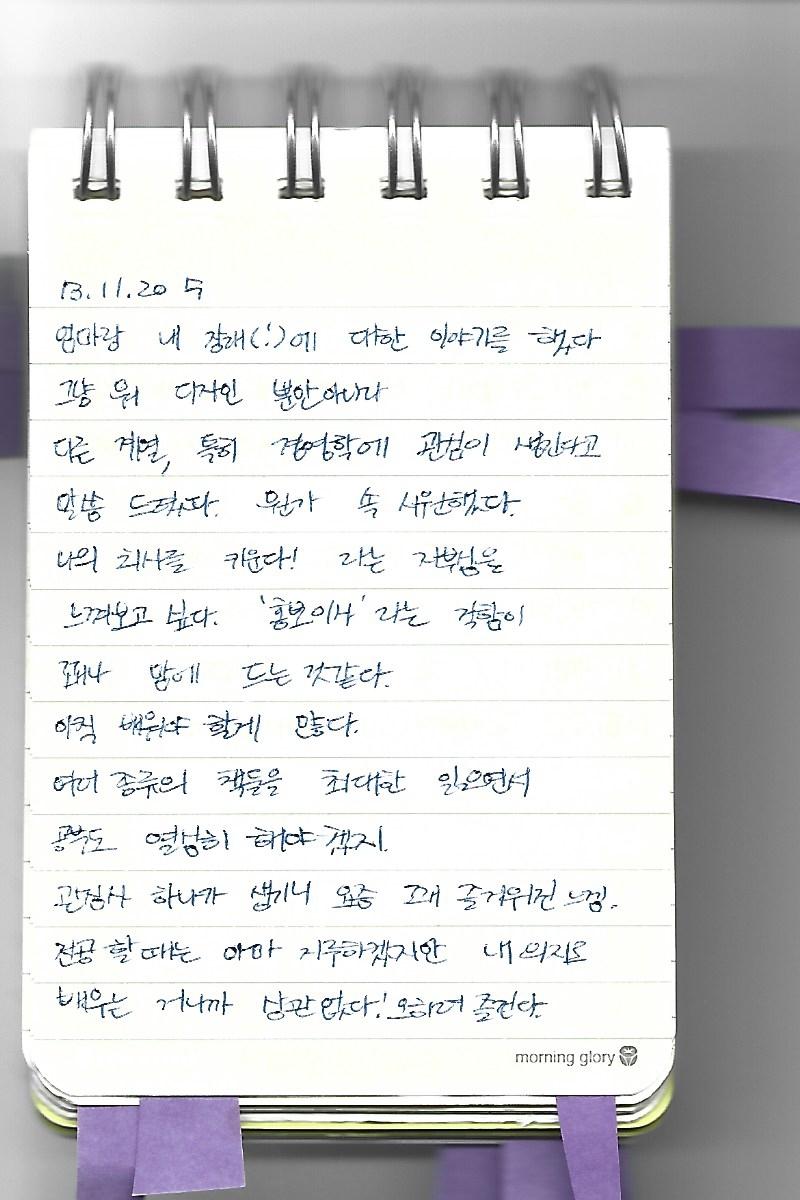 13.11.20 수
엄마랑 내 장래(!)에 대한 이야기를 했다
그냥 뭐 디자인 뿐만아니라
다른 계열, 특히 경영학에 관심이 생긴다고
말씀 드렸다. 뭔가 속 시원했다.
나의 회사를 키운다! 라는 자부심을
느껴보고 싶다. '홍보이사' 라는 직함이
꽤나 맘에 드는 것같다.
아직 배워야 할게 많다.
여러 종류의 책들을 최대한 읽으면서
공부도 열심히 해야겠지.
관심사 하나가 생기니 요즘 즐거워진 느낌.
전공 할때는 아마 지루하겠지만 내 의지로
배우는 거니까 상관없다! 오히려 즐긴다.
morning glory